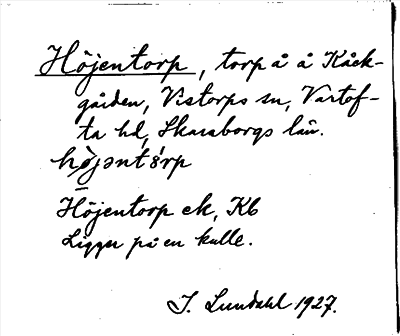 Höjentorp, torp å å Kåck-
gården, Vistorps sn, Vartof-
ta hd, Skaraborgs län.
Höjentorp ek, Kb
Ligger på en kulle.
I. Lundahl 1927.